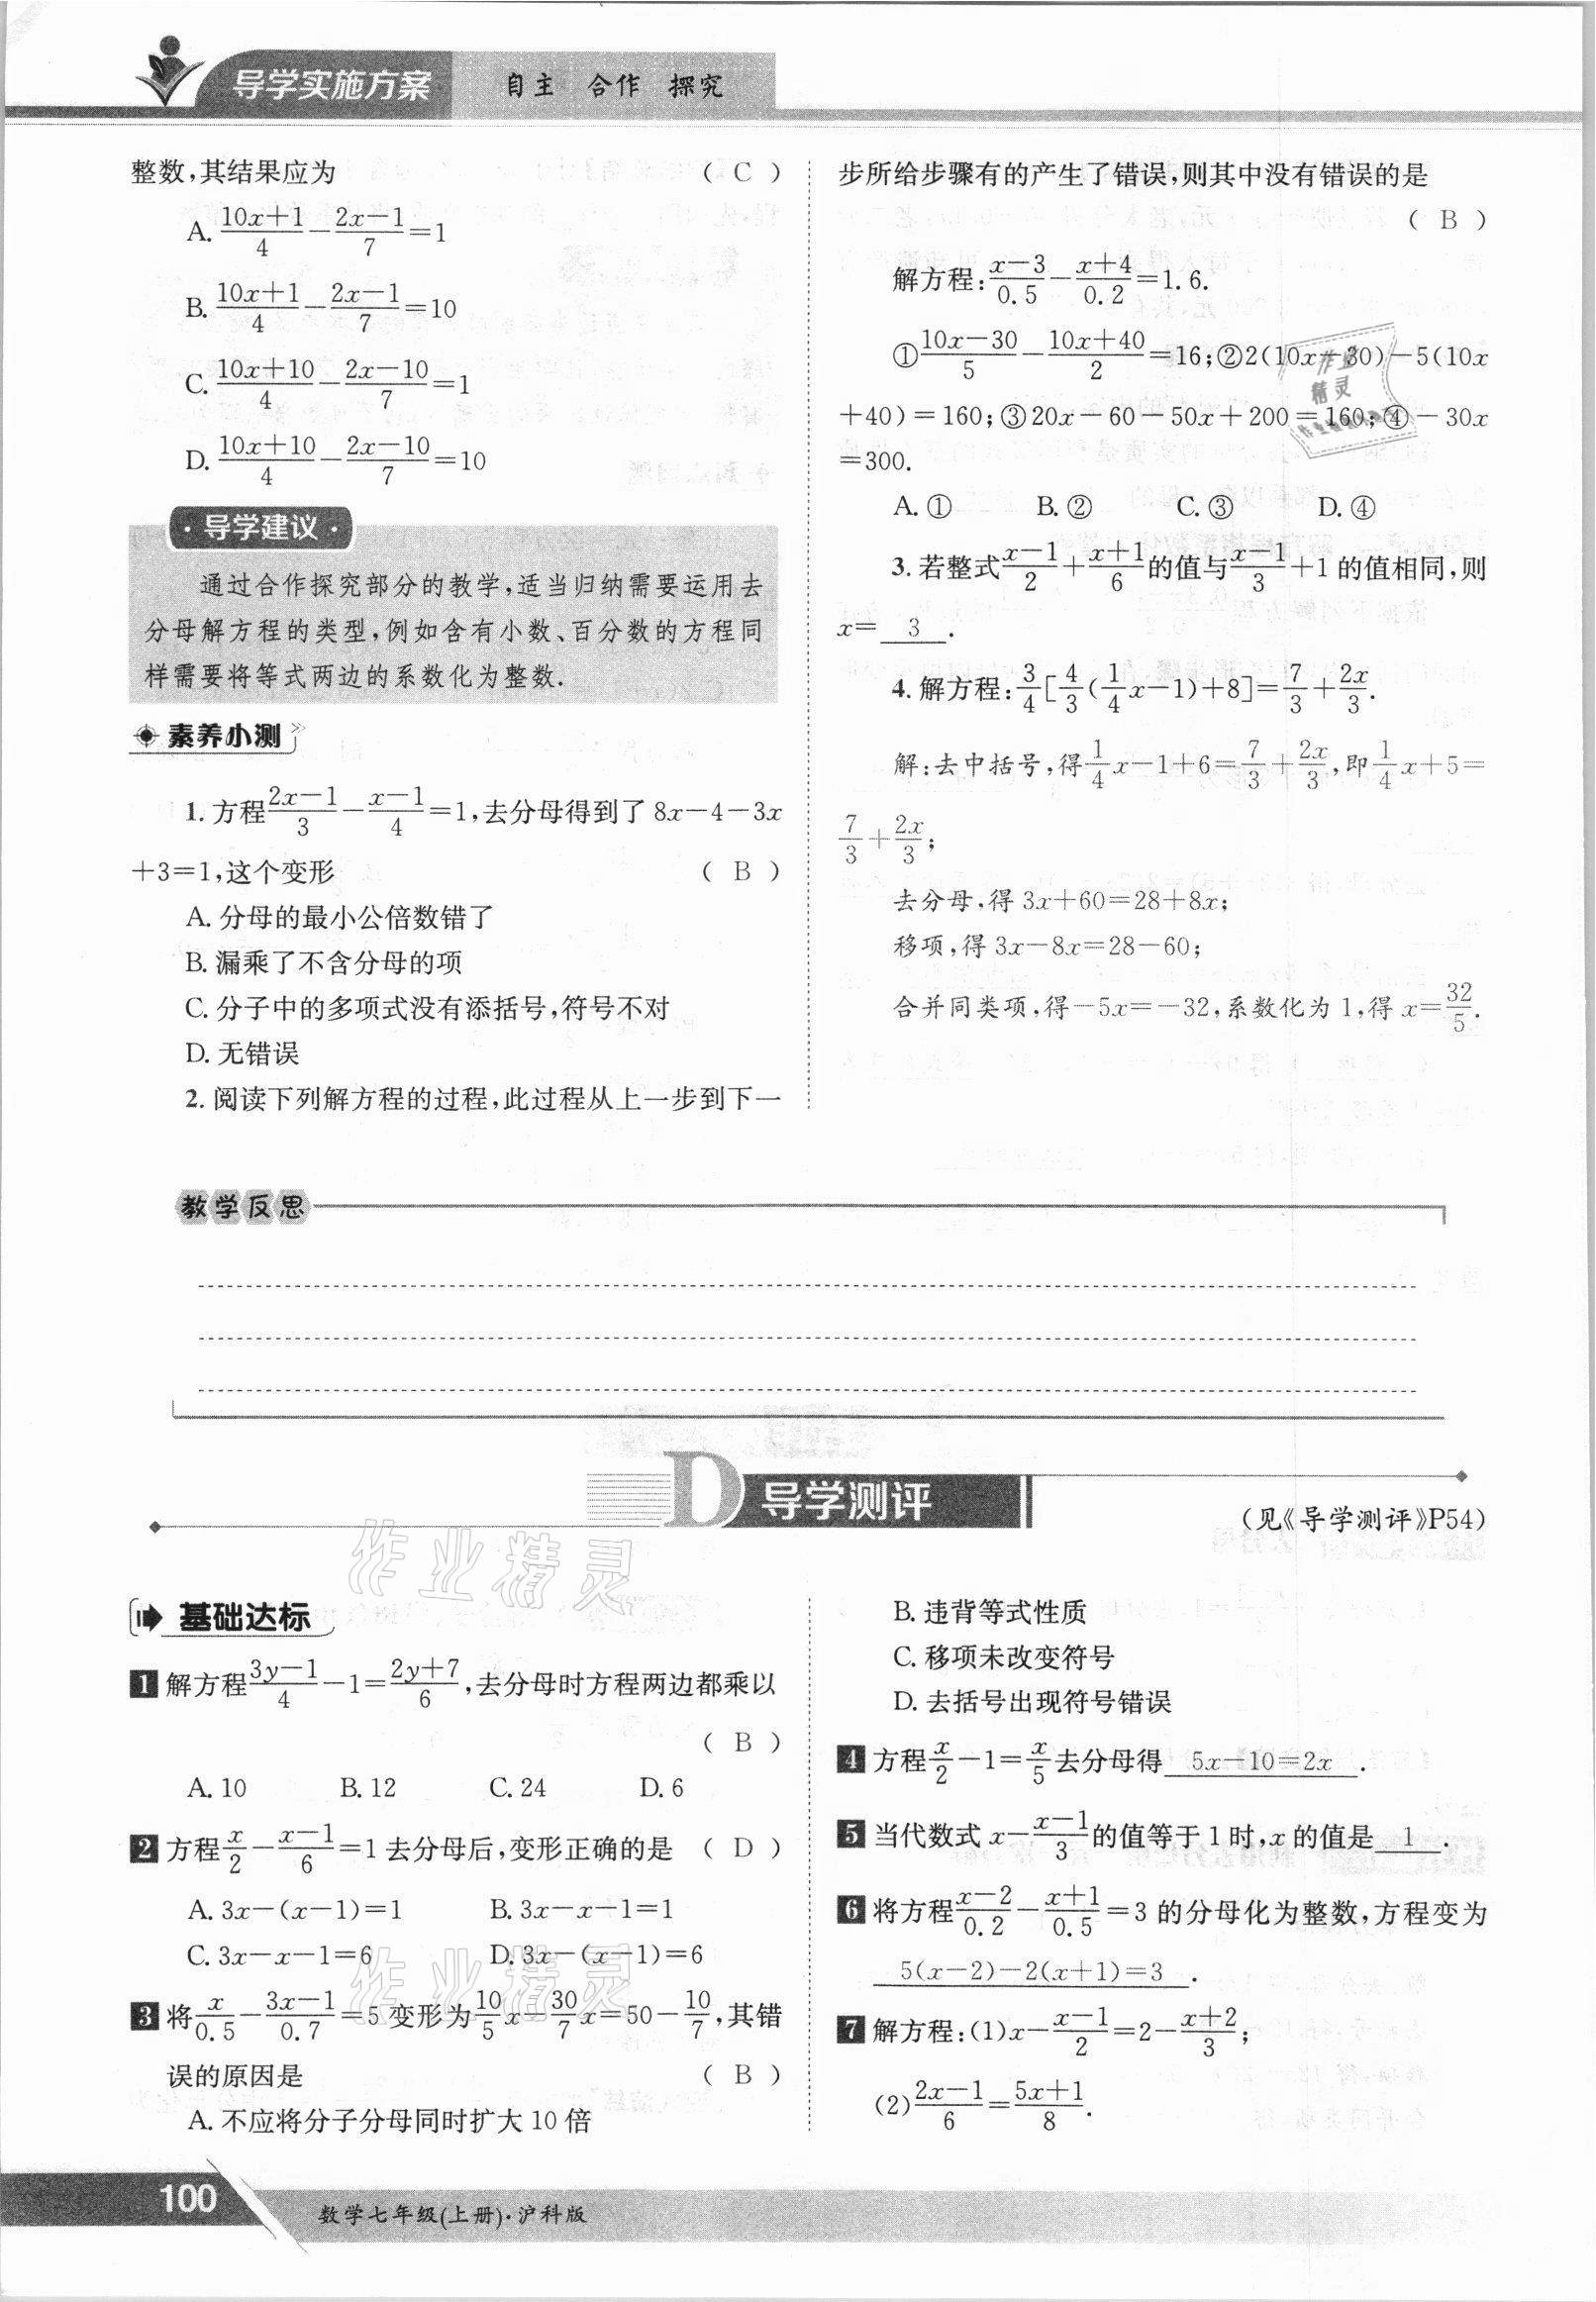 导学实施方案 自主 合作 探究
整数,其结果应为 ( C )
A. \frac{10x+1}{4}-\frac{2x-1}{7}=1
B. \frac{10x+1}{4}-\frac{2x-1}{7}=10
C. \frac{10x+10}{4}-\frac{2x-10}{7}=1
D. \frac{10x+10}{4}-\frac{2x-10}{7}=10
· 导学建议 ·
通过合作探究部分的教学,适当归纳需要运用去
分母解方程的类型,例如含有小数、百分数的方程同
样需要将等式两边的系数化为整数.
素养小测
1. 方程\frac{2x-1}{3}-\frac{x-1}{4}=1,去分母得到了 8x-4-3x
+3=1,这个变形 ( B )
A. 分母的最小公倍数错了
B. 漏乘了不含分母的项
C. 分子中的多项式没有添括号,符号不对
D. 无错误
2. 阅读下列解方程的过程,此过程从上一步到下一
步所给步骤有的产生了错误,则其中没有错误的是
( B )
解方程:\frac{x-3}{0.5}-\frac{x+4}{0.2}=1.6.
①\frac{10x-30}{5}-\frac{10x+40}{2}=16;②2(10x-30)-5(10x
+40)=160;③20x-60-50x+200=160;④-30x
=300.
A. ① B. ② C. ③ D. ④
3. 若整式\frac{x-1}{2}+\frac{x+1}{6}的值与\frac{x-1}{3}+1 的值相同,则
x= 3 .
4. 解方程:\frac{3}{4}[\frac{4}{3}(\frac{1}{4}x-1)+8]=\frac{7}{3}+\frac{2x}{3}.
解:去中括号,得\frac{1}{4}x-1+6=\frac{7}{3}+\frac{2x}{3},即\frac{1}{4}x+5=
\frac{7}{3}+\frac{2x}{3};
去分母,得 3x+60=28+8x;
移项,得 3x-8x=28-60;
合并同类项,得-5x=-32,系数化为 1,得 x=\frac{32}{5}.
作业
精灵
教学反思
D 导学测评
(见《导学测评》P54)
作业精灵
基础达标
1 解方程\frac{3y-1}{4}-1=\frac{2y+7}{6},去分母时方程两边都乘以
( B )
A. 10 B. 12 C. 24 D. 6
2 方程\frac{x}{2}-\frac{x-1}{6}=1 去分母后,变形正确的是 ( D )
A. 3x-(x-1)=1 B. 3x-x-1=1
C. 3x-x-1=6 D. 3x-(x-1)=6
作业精灵
3 将\frac{x}{0.5}-\frac{3x-1}{0.7}=5 变形为\frac{10}{5}x-\frac{30}{7}x=50-\frac{10}{7},其错
误的原因是 ( B )
A. 不应将分子分母同时扩大 10 倍
B. 违背等式性质
C. 移项未改变符号
D. 去括号出现符号错误
4 方程\frac{x}{2}-1=\frac{x}{5}去分母得 5x-10=2x .
5 当代数式 x-\frac{x-1}{3}的值等于 1 时,x 的值是 1 .
6 将方程\frac{x-2}{0.2}-\frac{x+1}{0.5}=3 的分母化为整数,方程变为
5(x-2)-2(x+1)=3 .
7 解方程:(1)x-\frac{x-1}{2}=2-\frac{x+2}{3};
(2)\frac{2x-1}{6}=\frac{5x+1}{8}.
100
数学七年级(上册)·沪科版